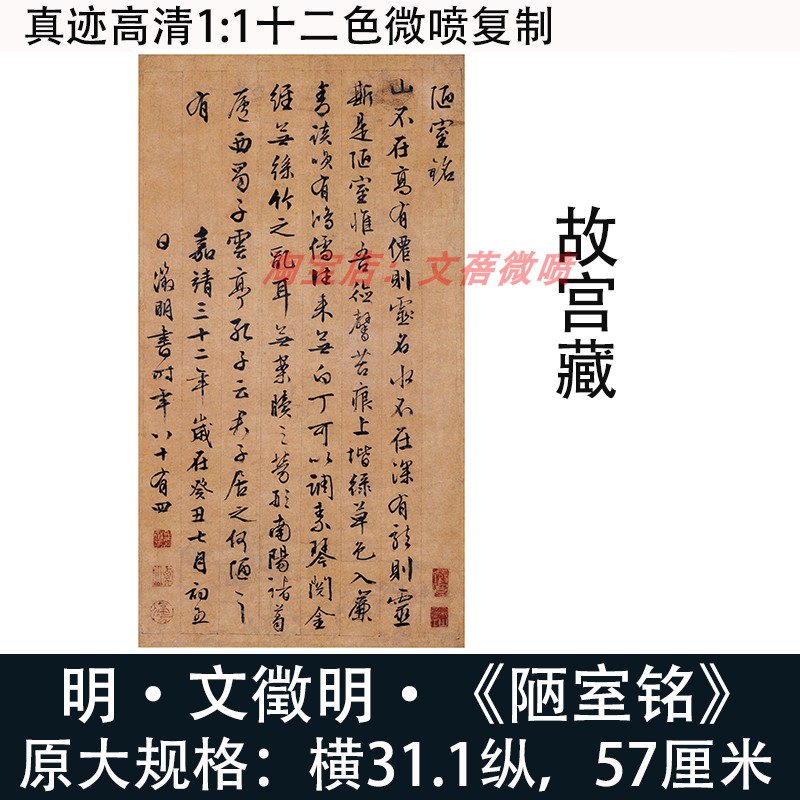 真迹高清1:1十二色微喷复制
陋室銘
山不在高有僊則靈名水不在深有龍則靈
斯是陋室惟吾德馨苔痕上堦綠草色入簾
青談咲有鴻儒往來無白丁可以調素琴閱金
經無絲竹之亂耳無案牘之勞形南陽諸葛
廬西蜀子雲亭孔子云君子居之何陋之
有
嘉靖三十二年歲在癸丑七月初五
日徵明書時年八十有四
淘宝店：文蓓微喷
故宫藏
明·文徵明·《陋室铭》
原大规格：横31.1纵，57厘米